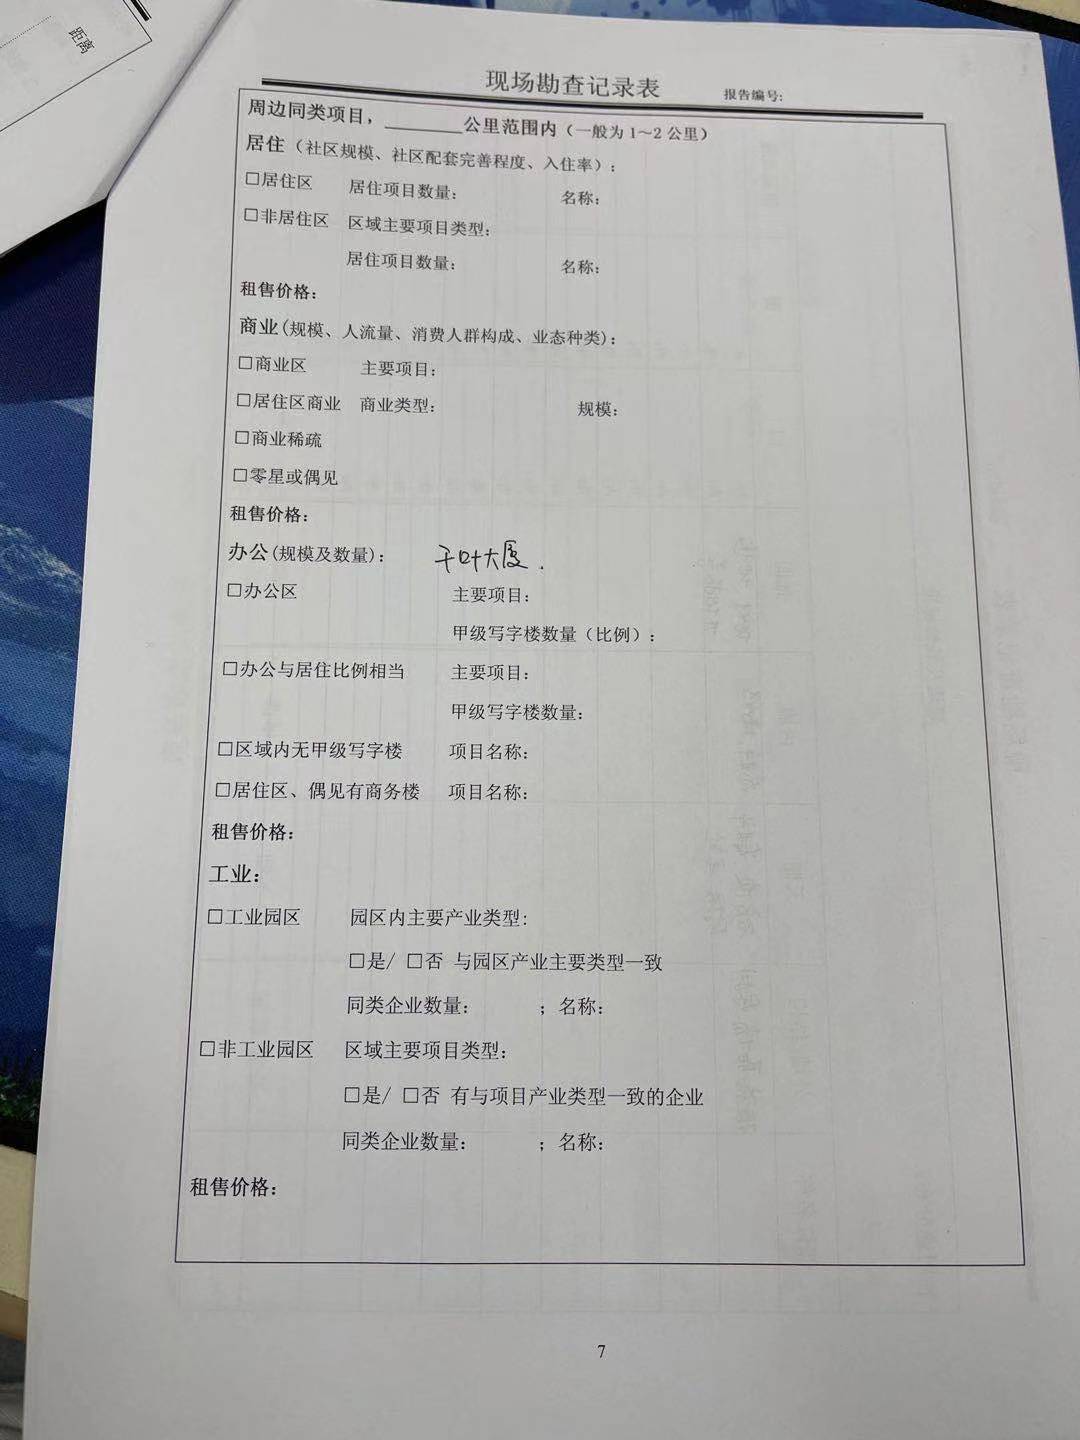 距离
现场勘查记录表 报告编号:
周边同类项目，________公里范围内（一般为 1～2 公里）
居住（社区规模、社区配套完善程度、入住率）:
□居住区 居住项目数量: 名称:
□非居住区 区域主要项目类型:
居住项目数量: 名称:
租售价格:
商业(规模、人流量、消费人群构成、业态种类):
□商业区 主要项目:
□居住区商业 商业类型: 规模:
□商业稀疏
□零星或偶见
租售价格:
办公(规模及数量): 千叶大厦.
□办公区 主要项目:
甲级写字楼数量（比例）:
□办公与居住比例相当 主要项目:
甲级写字楼数量:
□区域内无甲级写字楼 项目名称:
□居住区、偶见有商务楼 项目名称:
租售价格:
工业:
□工业园区 园区内主要产业类型:
□是/ □否 与园区产业主要类型一致
同类企业数量: ; 名称:
□非工业园区 区域主要项目类型:
□是/ □否 有与项目产业类型一致的企业
同类企业数量: ; 名称:
租售价格:
7